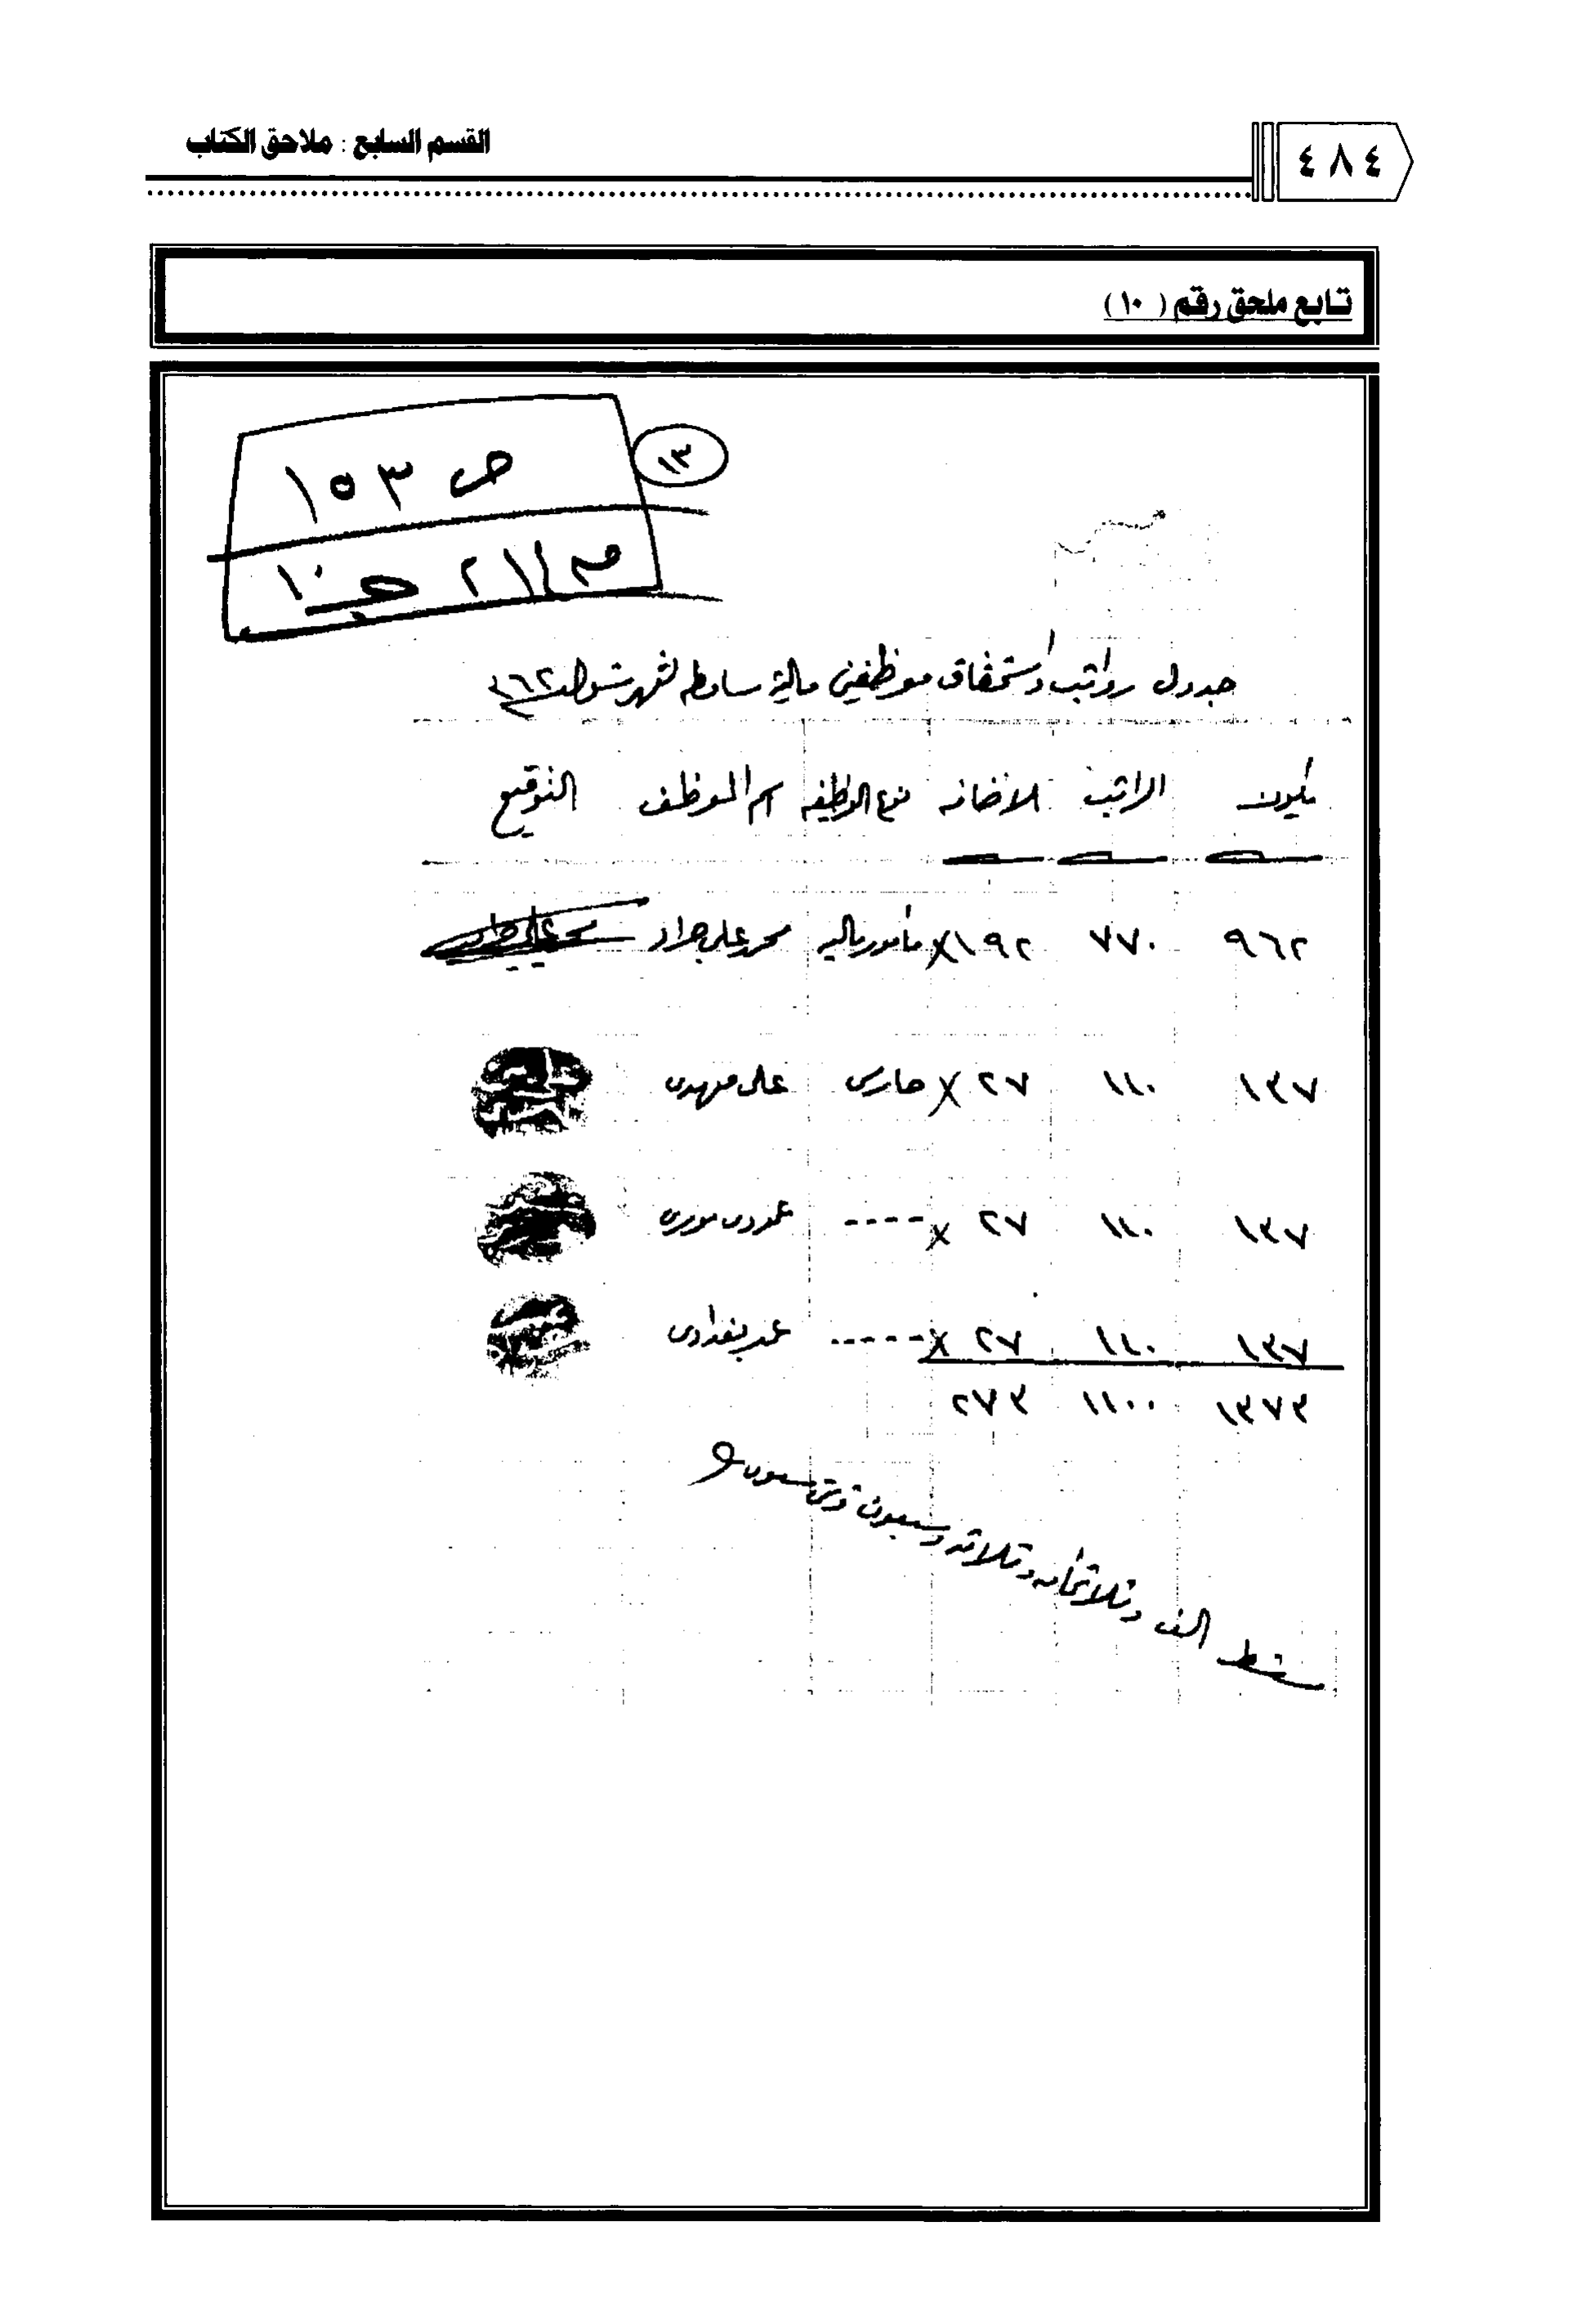 القسم السابع : ملاحق الكتاب
٤٨٤
تابع ملحق رقم ( ١٠ )
١٣
ص ١٥٣
جدول رواتب واستحقاق موظفين مالية سامطه لشهر شوال ٣٦٢
يكون الراتب الاضافه نوع الوظيفه اسم الموظف التوقيع
٩٦٢ ٧٧٠ ١٩٢ X مأمور ماليه محمد علي جراد
١٣٧ ١١٠ ٢٧ X حارس على مهدى
١٣٧ ١١٠ ٢٧ X ----
١٣٧ ١١٠ ٢٧ X ----- بغدادى
١٣٧٣ ١١٠٠ ٢٧٣
فقط الف وثلاثمايه وثلاثه وسبعون قرش